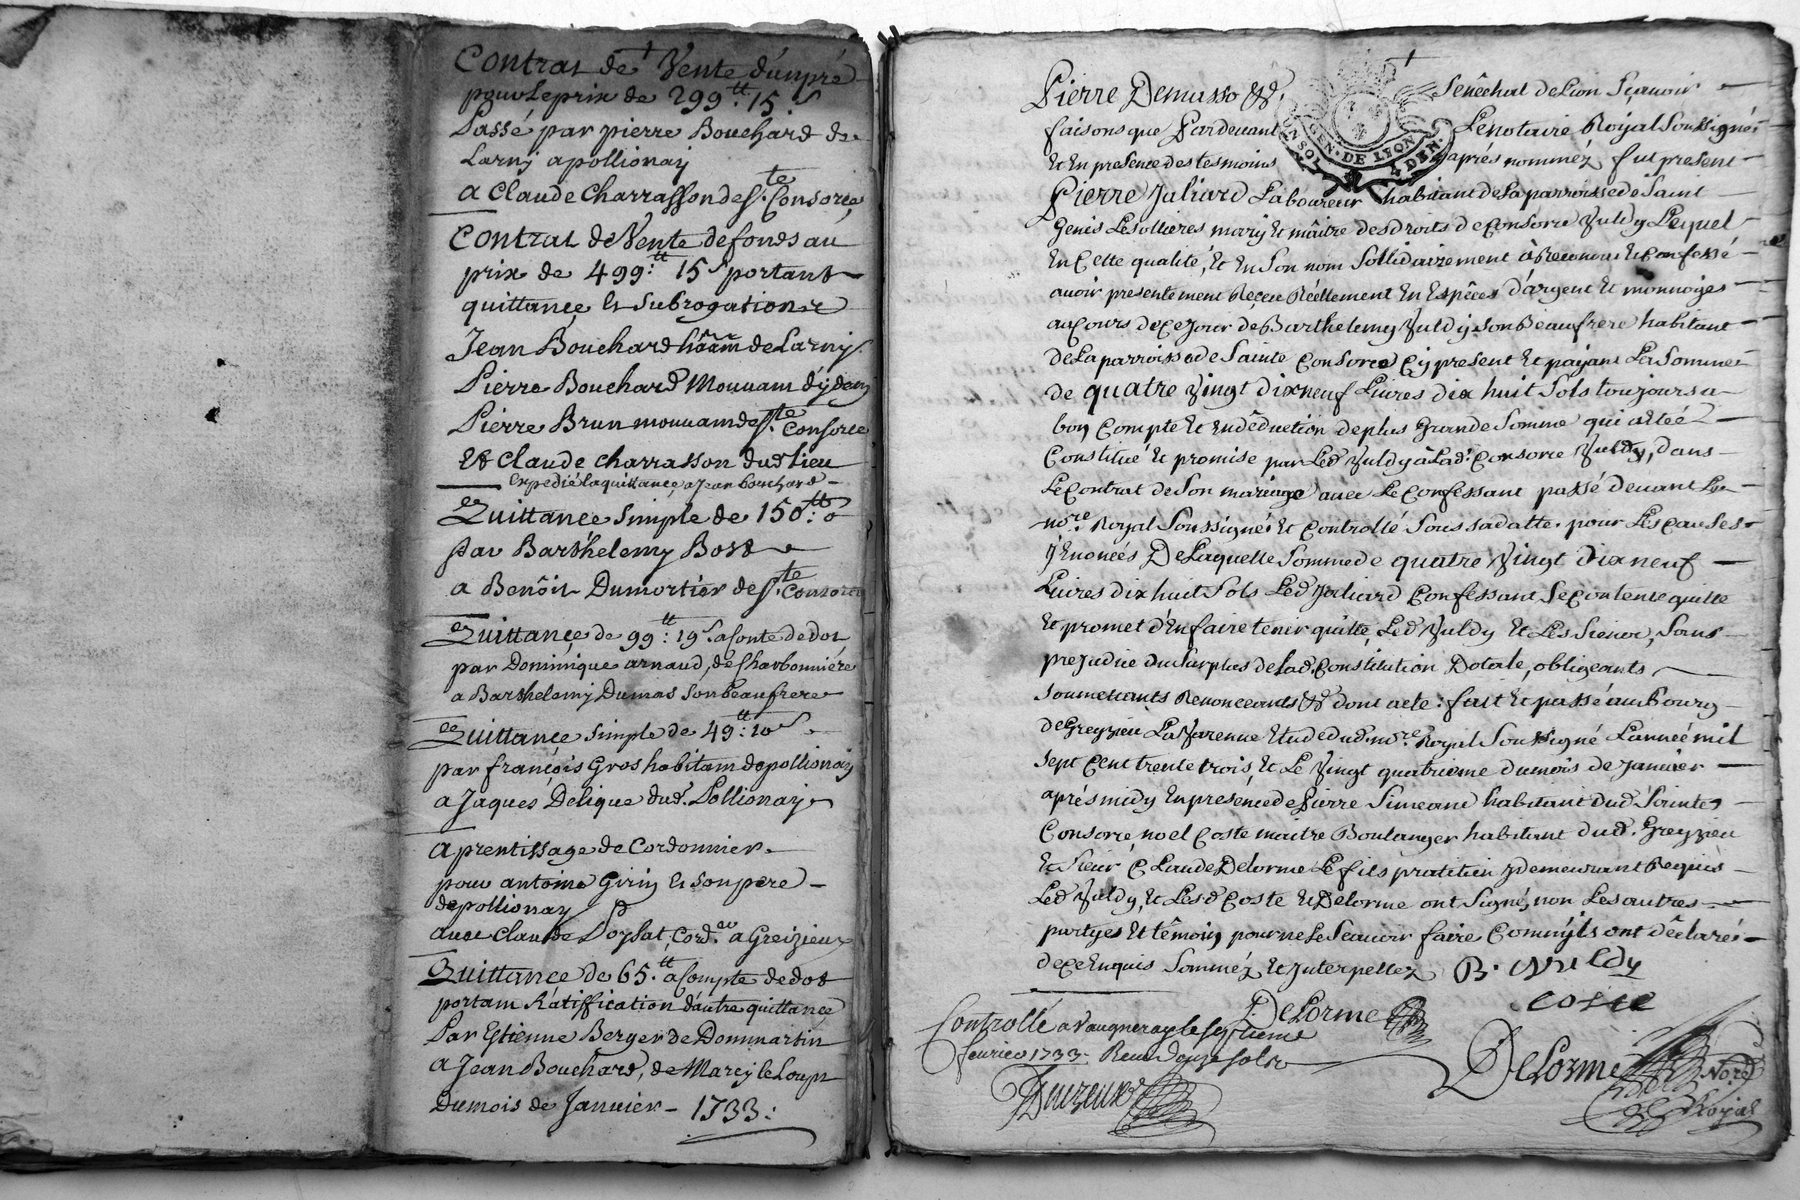 Contrat de Vente d'un pré
pour Le prix de 299 ͭͭ 15 s
Passé par pierre Bouchard de
Larny a pollionay
a Claude Charrasson de S.te Consorce
Contrat de Vente de fonds au
prix de 499 ͭͭ 15 s portant
quittance et subrogation
Jean Bouchard de Larny
Pierre Bouchard Mouvam d'ydem
Pierre Brun mouvam de S.te Consorce
Et Claude charrasson dud lieu
Expedié la quittance a Jean bouchard
Quittance Simple de 150 ͭͭ : o
par Barthelemy Bost
a Benôit Dumortier de S.te Consorce
Quittance de 99 ͭͭ : 19 s a Conte de dot
par Dominique arnaud, de Charbonniére
a Barthelemy Dumas son beaufrere
Quittance simple de 49 ͭͭ : 10 s
par françois Gros habitam de pollionay
a Jaques Delique dud. Pollionay
aprentissage de Cordonnier
pour antoine Girin et son pere
de pollionay
avec Claude Poyat, Cord.er a Greizieux
Quittance de 65 ͭͭ a Compte de dot
portam Ratiffication d'autre quittance
Par Estienne Berger de Dommartin
a Jean Bouchard, de Marcy le Loup
Du mois de Janvier - 1733 :
Pierre Demasso &c. Senêchal de Lion Sçavoir
faisons que Pardevant Le notaire Royal Soussigné
Et En presence des tesmoins aprés nommez fut present
Pierre Juliard Laboureur habitant de La parroisse de Saint
Genis Les ollieres mary Et mâitre des droits de Consorce Vuldy Lequel
En Cette qualité, Et En Son nom Sollidairement à Reconnu Et Confessé
avoir presentement Reçeu Réellement En Espéces d'argent Et monnoyes
au Cours de Ce Jour de Barthelemy Vuldy Son Beaufrere habitant
de La parroisse de Sainte Consorce Cy present Et payant La Somme
de quatre Vingt dix neuf Livres dix huit Sols toujours a
bon Compte Et En dêduction de plus Grande Somme qui a Eté
Constitué Et promise par Led Vuldy à Lad. Consorce Vuldy, dans
Le Contrat de Son mariage avec Le Confessant passé devant Le
no.re Royal Soussigné Et Controllé Sous sa datte pour Les Causes
y Enoncées De Laquelle Somme de quatre Vingt dix neuf
Livres dix huit Sols Led Juliard Confessant Se Contente quitte
Et promet d'En faire tenir quitte Led Vuldy Et Les Siens, Sans
prejudice du Surplus de Lad. Constitution Dotale, obligeants
Soumettants Renonceants &c dont acte : fait Et passé au Bourg
de Greyzieu La Varenne Etude dud no.re Royal Soussigné L'année mil
sept Cent trente trois, Et Le Vingt quatrieme du mois de Janvier
aprés midy En presence de Pierre Simeand habitant dud Sainte
Consorce, noel Coste maitre Boulanger habitant dud. Greyzieu
Et Sieur Claude Delorme Le fils pratitien y demeurant Requis
Led Vuldy, Et Lesd Coste Et Delorme ont Signé, non Les autres
partyes Et têmoin pour ne Le Scavoir faire Comm'ils ont dêclaré
de Ce Enquis Sommêz Et Interpellez B. Vuldy
Coste
Delorme
Controllé a Vaugneray le Septieme
fevrier 1733. Receu Douze sols
Delorme
No.re Royal
GEN. DE LYON